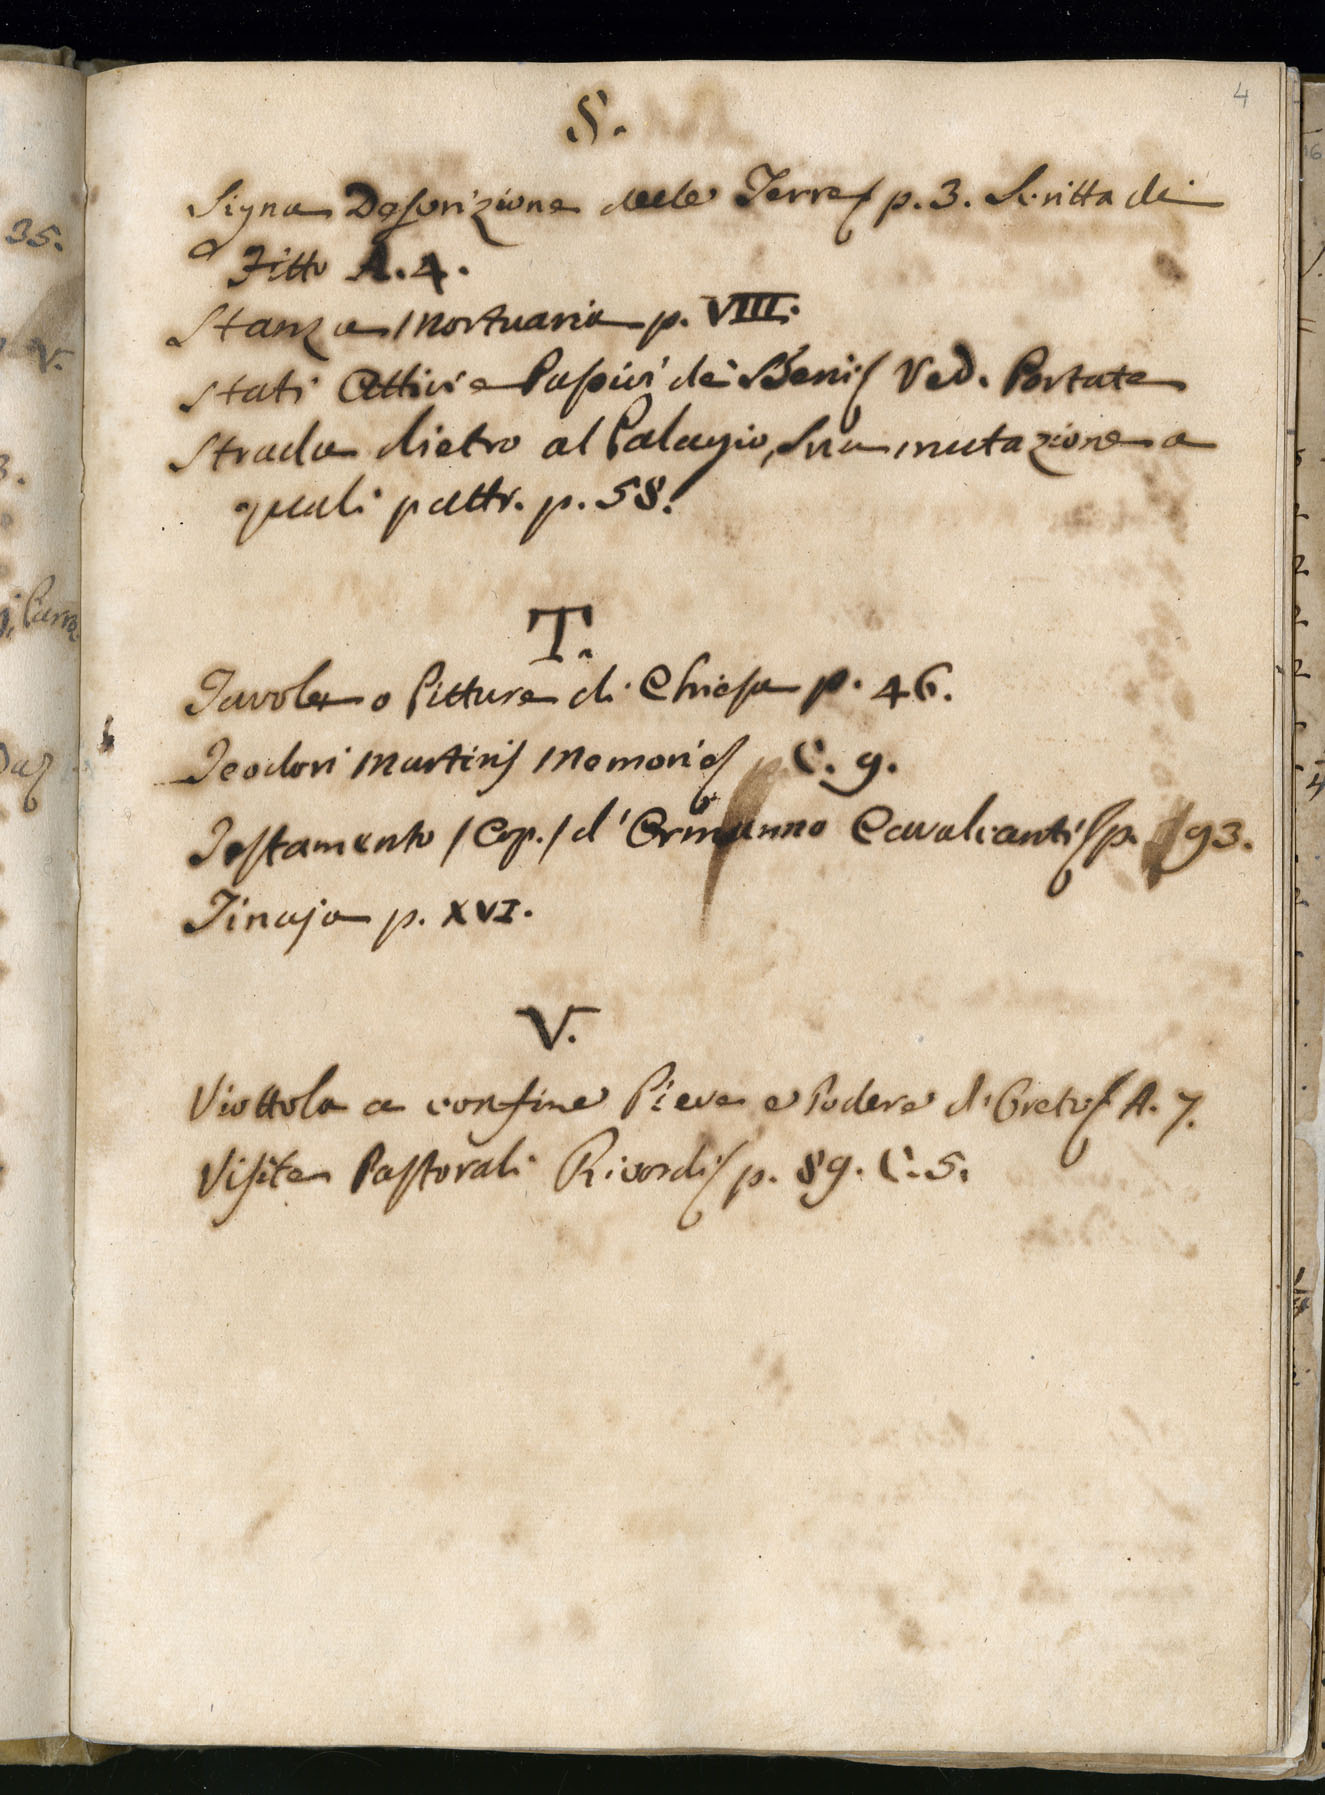 4
S.
Signa Descrizione delle Terre p. 3. Scritta di
Fitto A. 4.
Stanza Mortuaria p. VIII.
Stati Attivi e Passivi dei Beni Ved. Portate
Strada dietro al Palagio, Sua mutazione a
quali patti. p. 58.
T.
Tavole o Pitture di Chiesa p. 46.
Teodori Martiri Memorie C. 9.
Testamento /Cop./ d'Ormanno Cavalcanti p. 93.
Tinaja p. XVI.
V.
Viottola a confine Pieve e Podere di A. 7.
Visite Pastorali Ricordi p. 89. C. 5.
35.
V.
3.